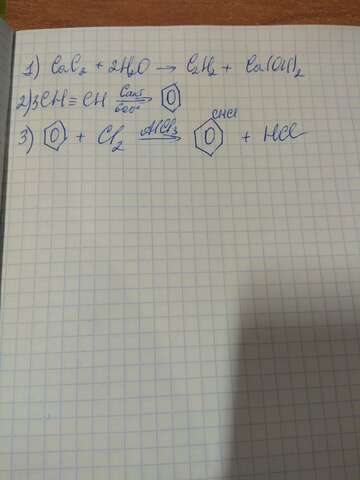 1) CaC₂ + 2H₂O → C₂H₂ + Ca(OH)₂
2) 3CH≡CH Cакт 600° →
3) + Cl₂ AlCl₃ → CHCl + HCl